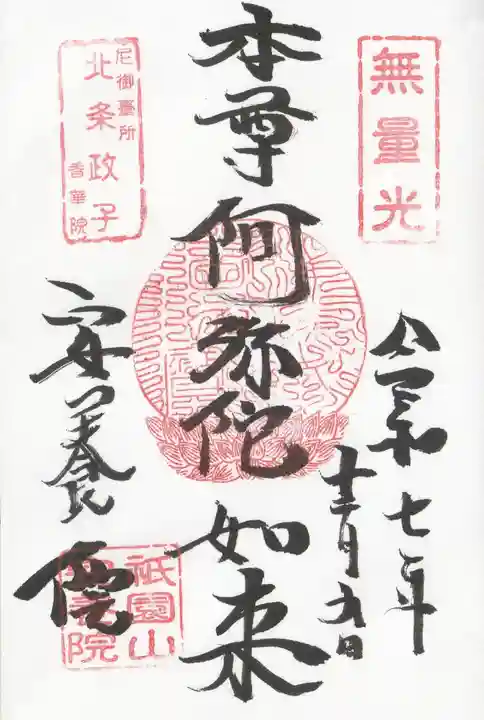 無量光
令和七年
十一月九日
本尊阿弥陀如来
尼御臺所
北条政子
香華院
安養院
祇園山
安養院